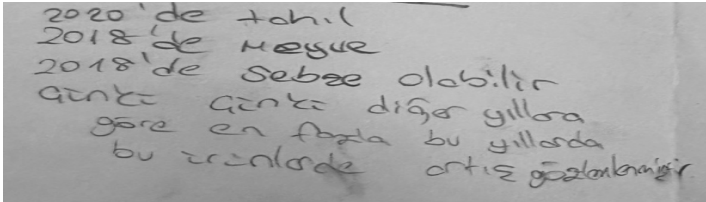 2020'de tahıl
2018'de meyve
2018'de sebze olabilir
Çünkü Çünkü diğer yıllara
göre en fazla bu yıllarda
bu ürünlerde artış gözlenlenmiştir.